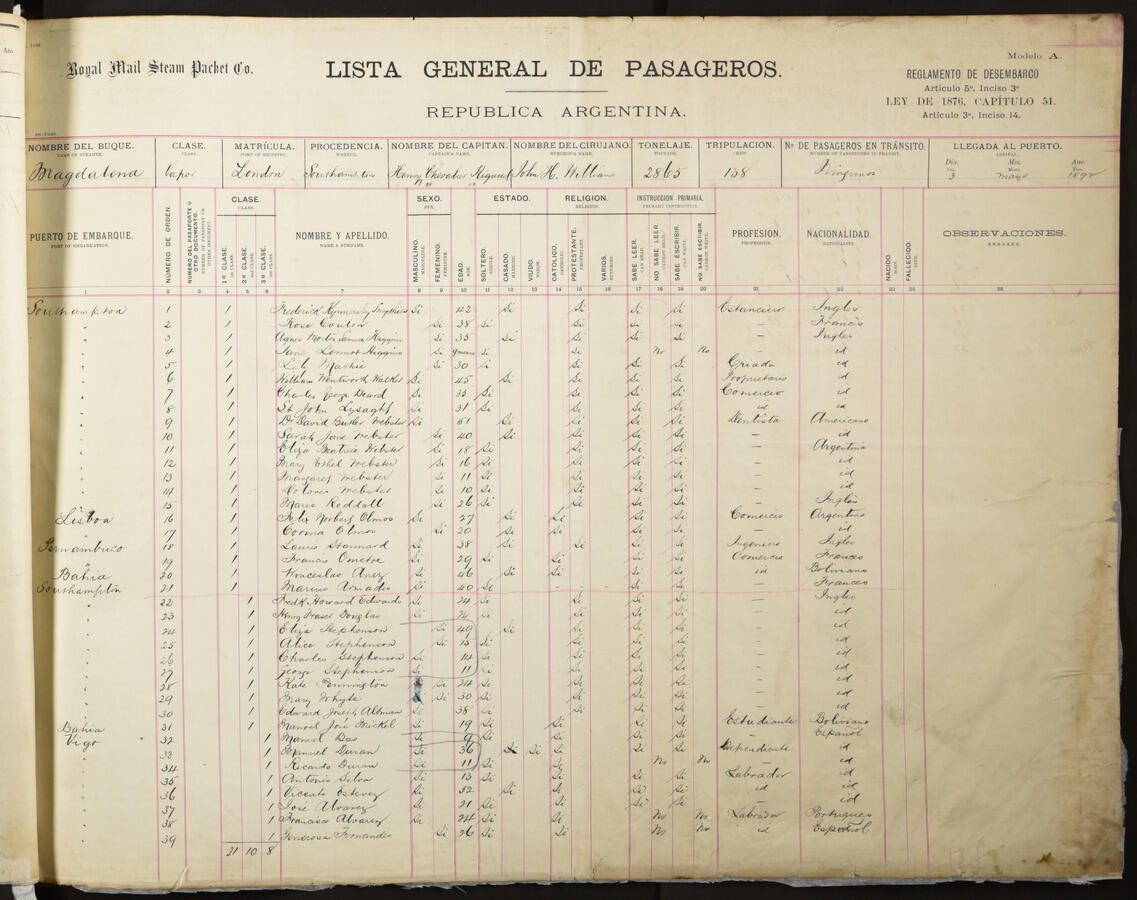 Royal Mail Steam Packet Co.
LISTA GENERAL DE PASAGEROS.
REPUBLICA ARGENTINA.
Modelo A.
REGLAMENTO DE DESEMBARCO
Artículo 5º, Inciso 3º
LEY DE 1876, CAPÍTULO 51.
Artículo 3º, Inciso 14.
NOMBRE DEL BUQUE. CLASE. MATRÍCULA. PROCEDENCIA. NOMBRE DEL CAPITAN. NOMBRE DEL CIRUJANO. TONELAJE. TRIPULACION. Nº DE PASAGEROS EN TRÁNSITO. LLEGADA AL PUERTO.
NAME OF STEAMER. CLASS. PORT OF REGISTRY. WHENCE. CAPTAIN'S NAME. SURGEON'S NAME. TONNAGE. CREW. NUMBER OF PASSENGERS IN TRANSIT. ARRIVAL.
Dia. Mes. Ano.
Magdalena Vapor London Southampton Henry Chevalier John H. Williams 2865 158 3 mayo 1892
PUERTO DE EMBARQUE. NÚMERO DE ORDEN. NÚMERO DEL PASAPORTE U OTRO DOCUMENTO. CLASE. NOMBRE Y APELLIDO. SEXO. EDAD. ESTADO. RELIGION. INSTRUCCION PRIMARIA. PROFESION. NACIONALIDAD. NACIDO. FALLECIDO. OBSERVACIONES.
PORT OF EMBARKATION. CLASS. NAME & SURNAME. SEX. AGE. RELIGION. PRIMARY INSTRUCTION. PROFESSION. NATIONALITY. REMARKS.
1ª CLASE. 2ª CLASE. 3ª CLASE. MASCULINO. FEMENINO. SOLTERO. CASADO. VIUDO. CATOLICO. PROTESTANTE. VARIOS. SABE LEER. NO SABE LEER. SABE ESCRIBIR. NO SABE ESCRIBIR.
1 2 3 4 5 6 7 8 9 10 11 12 13 14 15 16 17 18 19 20 21 22 23 24
Southampton 1 1 Frederick Si 42 Si Si Si Si Estanciero Ingles
" 2 1 Rose Si 38 Si Si si si — Francis
" 3 1 Agnes Higgins Si 35 Si Si Si Si — Ingles
" 4 1 Jane Lennox Higgins Si Si Si No No — id
" 5 1 Mathie Si 30 Si Si Si Si Criada id
" 6 1 William Wentworth Walker Si 45 Si Si Si Si Propietario id
" 7 1 Charles George Deard Si 35 Si Si Si Si Comercio id
" 8 1 St John Lysaght Si 31 Si Si Si Si id id
" 9 1 Dr David Butler Webster Si 51 Si Si Si Si Dentista Americano
" 10 1 Sarah Jane Webster Si 40 Si Si Si Si — id
" 11 1 Eliza Beatrice Webster Si 18 Si Si Si Si — Argentina
" 12 1 Mary Ethel Webster Si 16 Si Si Si Si — id
" 13 1 Margaret Webster Si 11 Si Si Si Si — id
" 14 1 Dolores Webster Si 10 Si Si Si Si — id
" 15 1 Marie Reddall Si 26 Si Si Si Si — Inglés
Lisboa 16 1 Norbert Olmos Si 27 Si Si Si Si Comercio Argentino
" 17 1 Corina Olmos Si 20 Si Si Si Si — id
Pernambuco 18 1 Stannard Si 38 Si Si Si Si Ingeniero Ingles
" 19 1 Francis Si 29 Si Si Si Si Comercio Frances
Bahia 20 1 Wenceslao Si 46 Si Si Si Si id Boliviano
Southampton 21 1 Marius Si 40 Si - - Si Si — Frances
" 22 1 Fredk Howard Edwards Si 24 Si Si Si Si — Ingles
" 23 1 Henry Fraser Douglas Si Si Si Si Si — id
" 24 1 Eliza Stephenson Si 40 Si Si Si Si — id
" 25 1 Alice Stephenson Si 15 Si Si Si Si — id
" 26 1 Charles Stephenson Si 14 Si Si Si Si — id
" 27 1 George Stephenson Si 11 Si Si Si Si — id
" 28 1 Kate Pennington Si 24 Si Si Si Si — id
" 29 1 Mary Whyte Si 30 Si Si Si Si — id
" 30 1 Edward Joseph Altman Si 38 Si Si Si Si — id
Bahia 31 1 Manoel José Si 19 Si Si Si Si Estudiante Boliviano
Vigo 32 1 Manuel Si 9 Si Si — Español
" 33 1 Manuel Duran Si 36 Si Si Si Si Si Dependiente id
" 34 1 Ricardo Duran Si 11 Si Si No No — id
" 35 1 Antonio Silva Si 13 Si Si Si Si Labrador id
" 36 1 Vicente Estevez Si 32 Si Si Si Si id id
" 37 1 José Alvarez Si 21 Si Si Si Si — id
" 38 1 Francisco Alvarez Si 24 Si Si No No Labrador Portugues
" 39 1 Generosa Fernandes Si 26 Si Si No No id Español
31 10 8